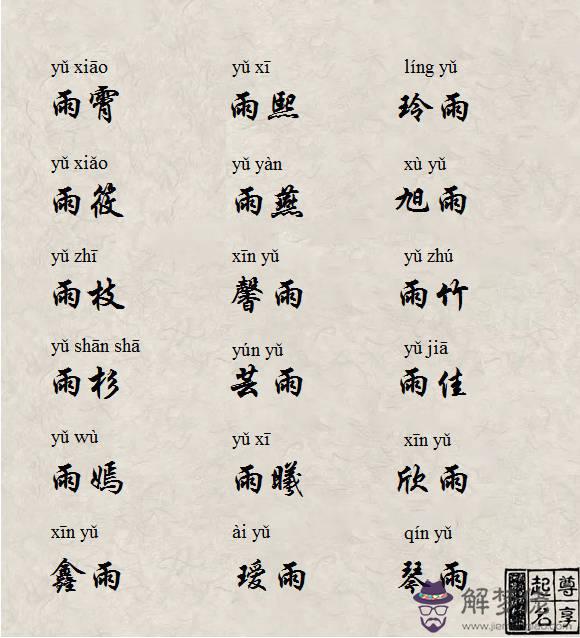 yǔ xiāo yǔ xī líng yǔ
雨霄 雨熙 玲雨
yǔ xiǎo yǔ yàn xù yǔ
雨筱 雨燕 旭雨
yǔ zhī xīn yǔ yǔ zhú
雨枝 馨雨 雨竹
yǔ shān shā yún yǔ yǔ jiā
雨杉 芸雨 雨佳
yǔ wù yǔ xī xīn yǔ
雨嫣 雨曦 欣雨
xīn yǔ ài yǔ qín yǔ
鑫雨 瑷雨 琴雨
尊享
起名
解梦